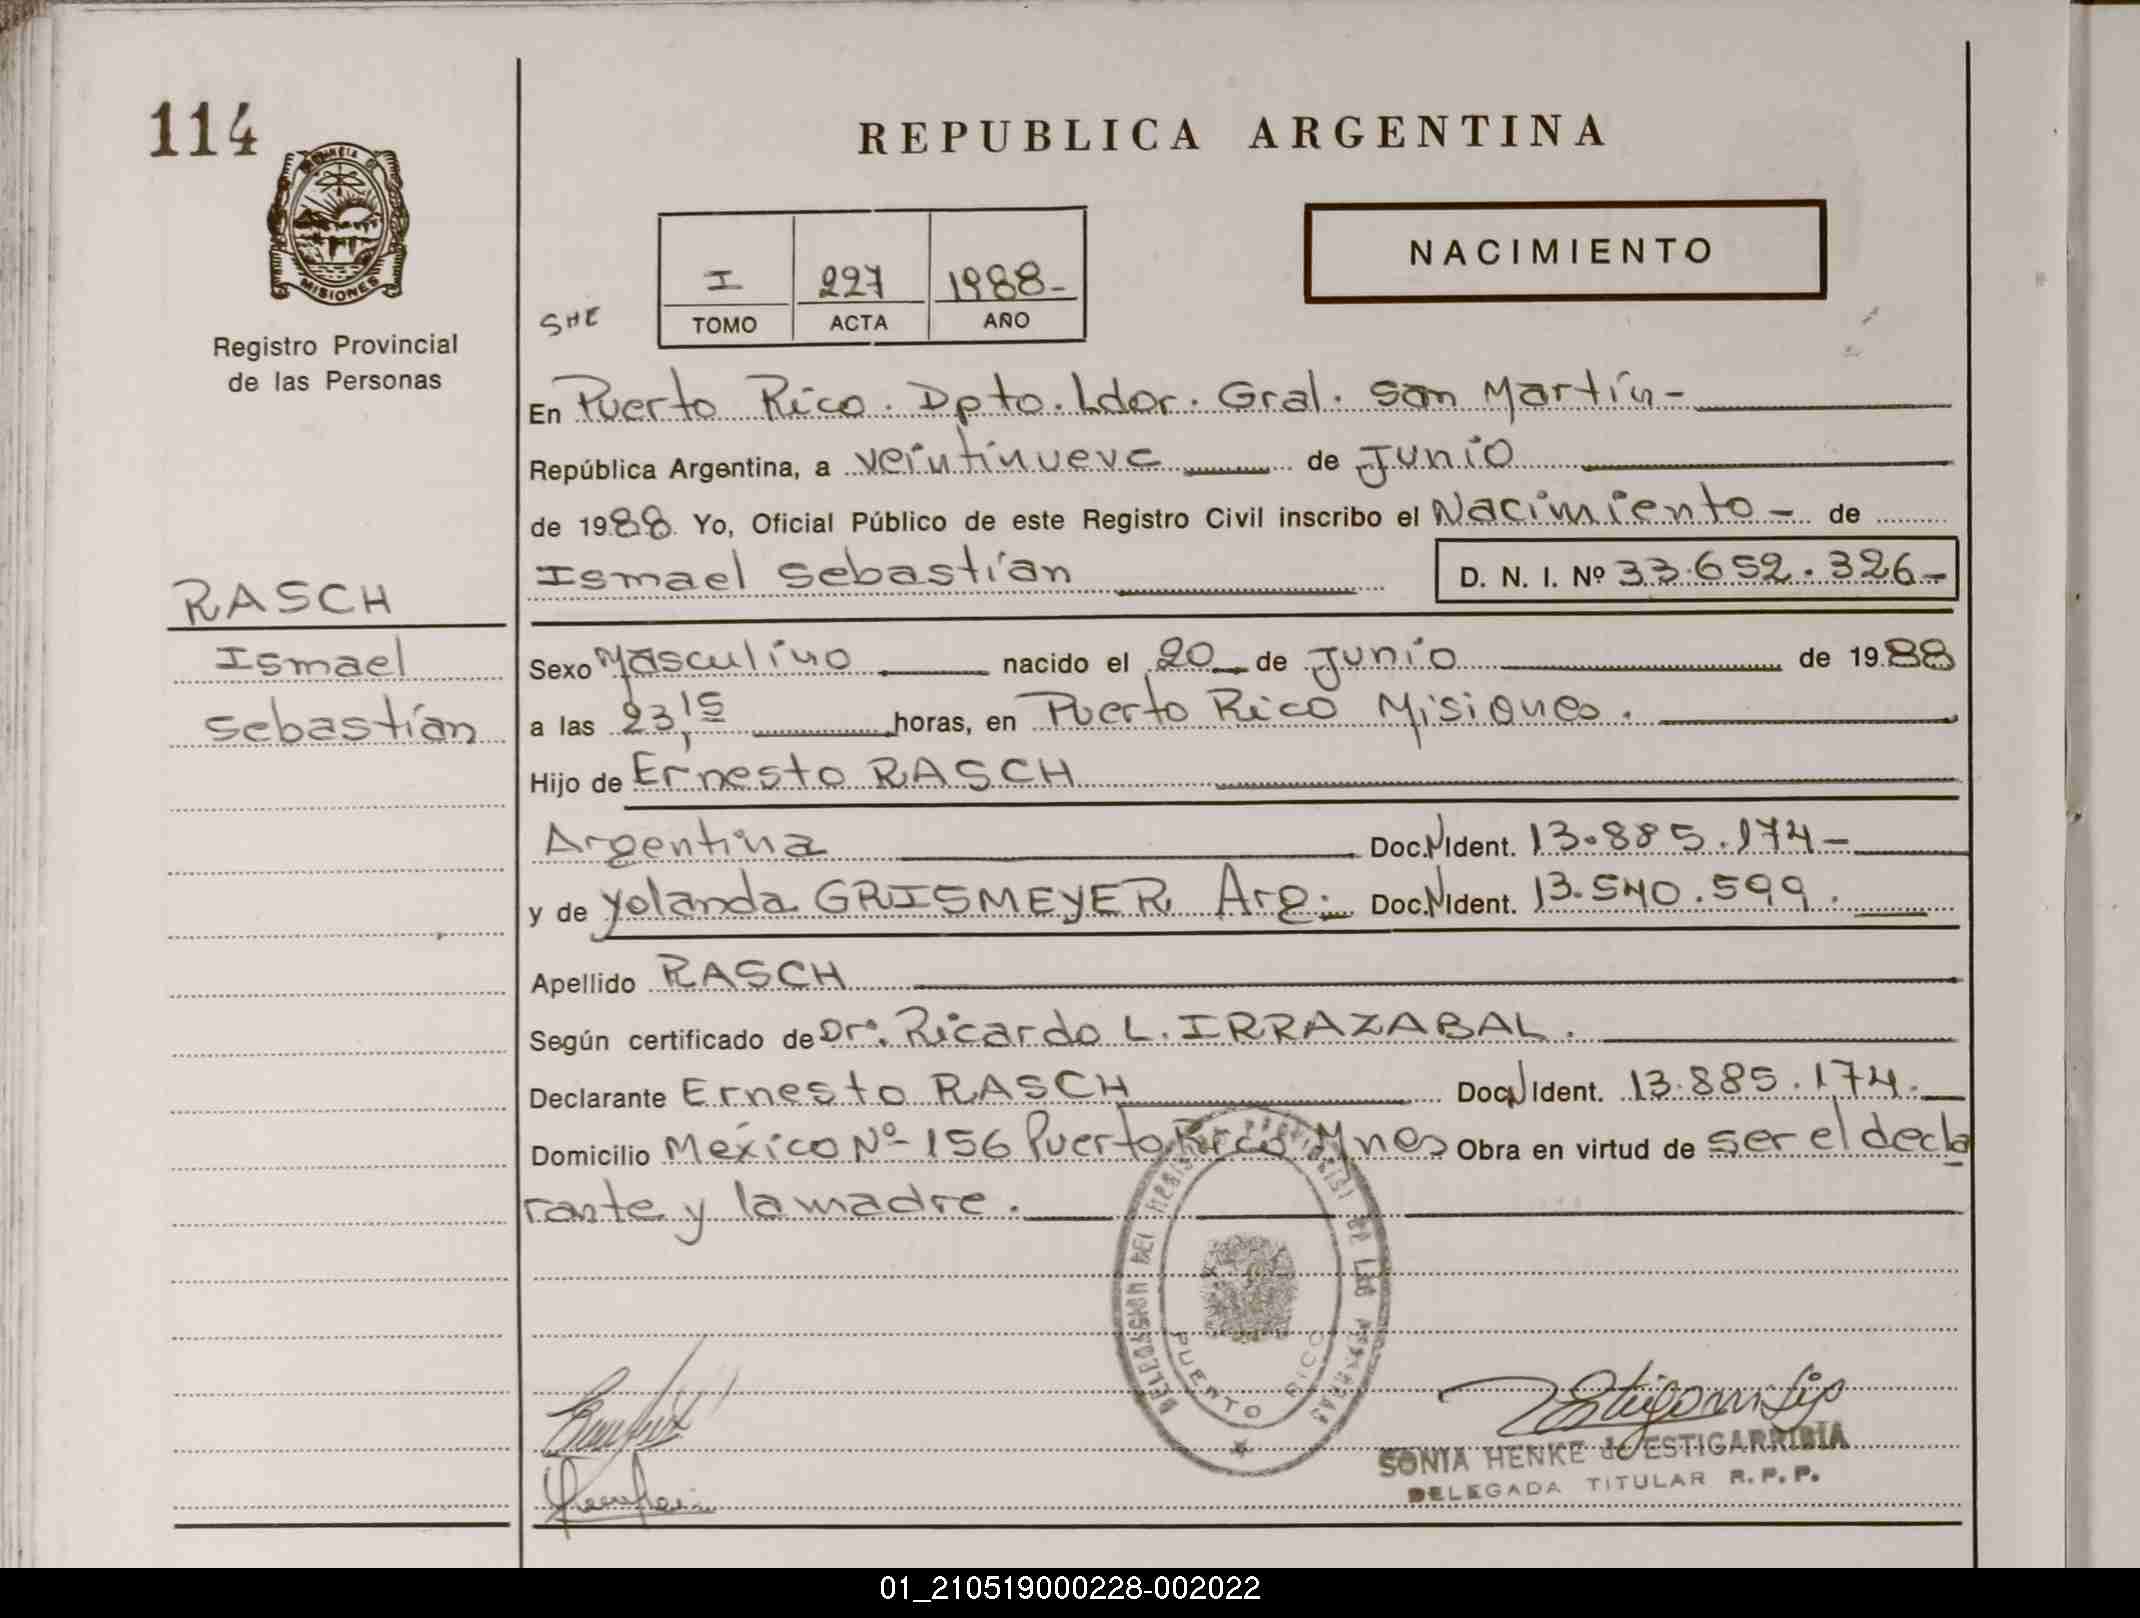 114
PROVINCIA DE
MISIONES
Registro Provincial
de las Personas
RASCH
Ismael
Sebastián
REPUBLICA ARGENTINA
NACIMIENTO
I 227 1988-
TOMO ACTA AÑO
SHE
En Puerto Rico. Dpto. Ldor. Gral. San Martín-
República Argentina, a veintinueve de Junio
de 1988 Yo, Oficial Público de este Registro Civil inscribo el Nacimiento - de
Ismael Sebastián D. N. I. Nº 33.652.326-
Sexo Masculino nacido el 20 de Junio de 1988
a las 23,15 horas, en Puerto Rico Misiones.
Hijo de Ernesto RASCH
Argentina Doc.N Ident. 13.885.174-
y de Yolanda GRISMEYER Arg. Doc.N Ident. 13.540.599.
Apellido RASCH
Según certificado de Dr. Ricardo L. IRRAZABAL.
Declarante Ernesto RASCH Doc.N Ident. 13.885.174.
Domicilio México Nº 156 Puerto Rico Mnes Obra en virtud de ser el decla
rante y la madre.
DELEGACION DEL REGISTRO PROVINCIAL DE LAS PERSONAS
PUERTO RICO
SONIA HENKE de ESTIGARRIBIA
DELEGADA TITULAR R. P. P.
01_210519000228-002022